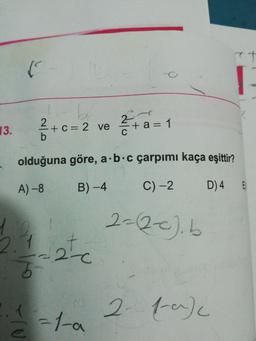 13. 2/b + c = 2 ve 2/c + a = 1
olduğuna göre, a·b·c çarpımı kaça eşittir?
A) –8 B) –4 C) –2 D) 4 E
2=(2-c).b
2.1/b=2-c
2 1-a)c
1/c=1-a